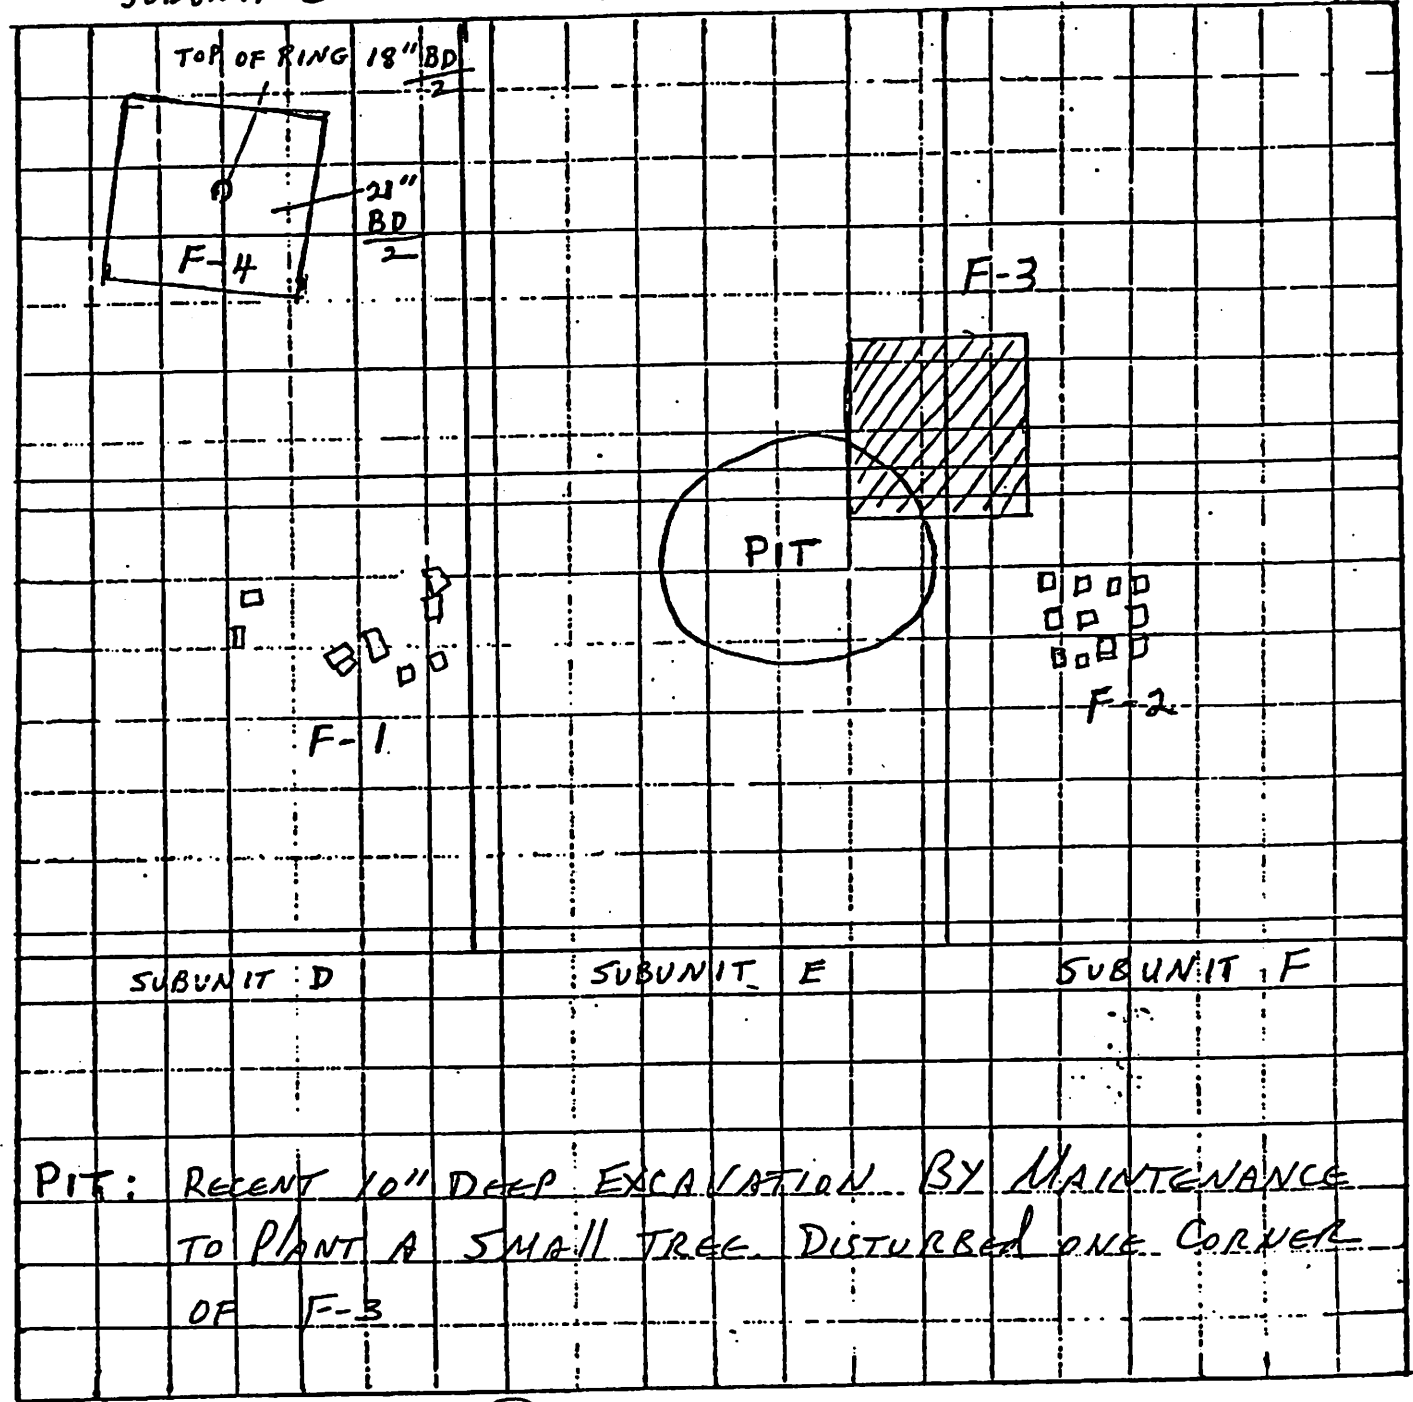 SUBUNIT
TOP OF RING 18" BD/2
21" BD/2
F-4
F-3
PIT
F-1
F-2
SUBUNIT D
SUBUNIT E
SUBUNIT F
PIT: RECENT 10" DEEP EXCAVATION BY MAINTENANCE
TO PLANT A SMALL TREE. DISTURBED ONE CORNER
OF F-3